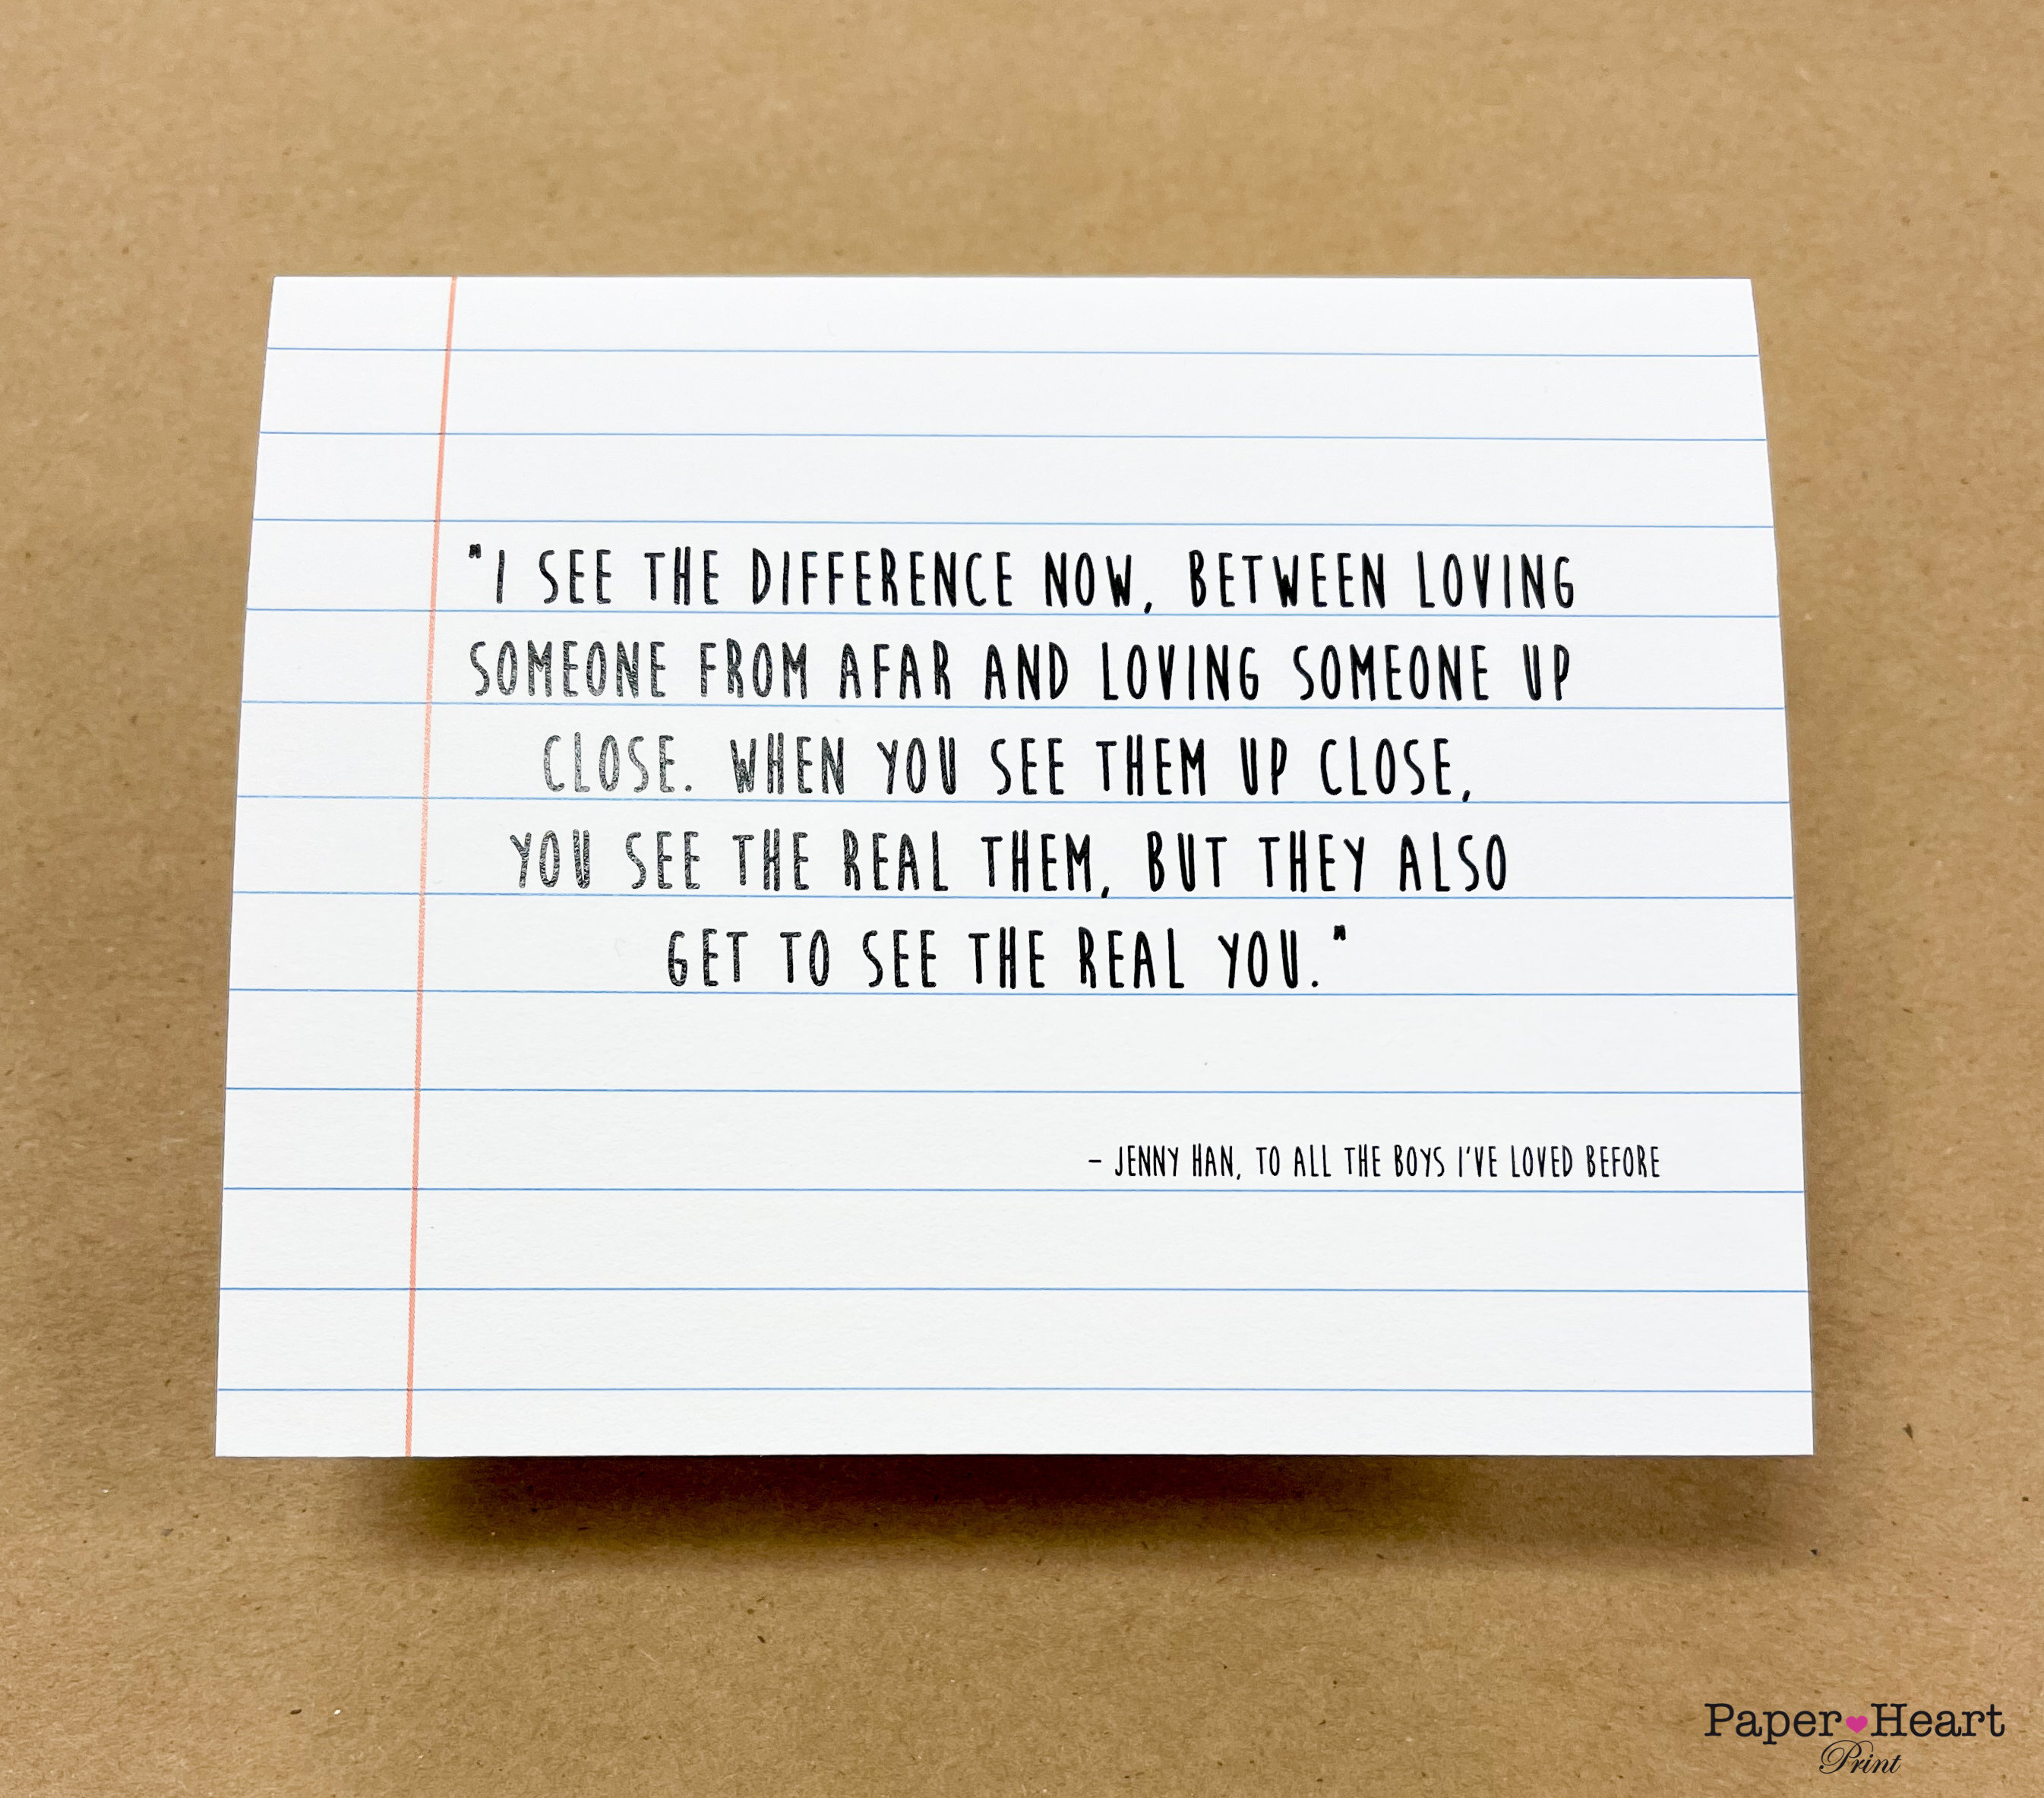 "I SEE THE DIFFERENCE NOW, BETWEEN LOVING
SOMEONE FROM AFAR AND LOVING SOMEONE UP
CLOSE. WHEN YOU SEE THEM UP CLOSE,
YOU SEE THE REAL THEM, BUT THEY ALSO
GET TO SEE THE REAL YOU."
- JENNY HAN, TO ALL THE BOYS I'VE LOVED BEFORE
Paper Heart
Print